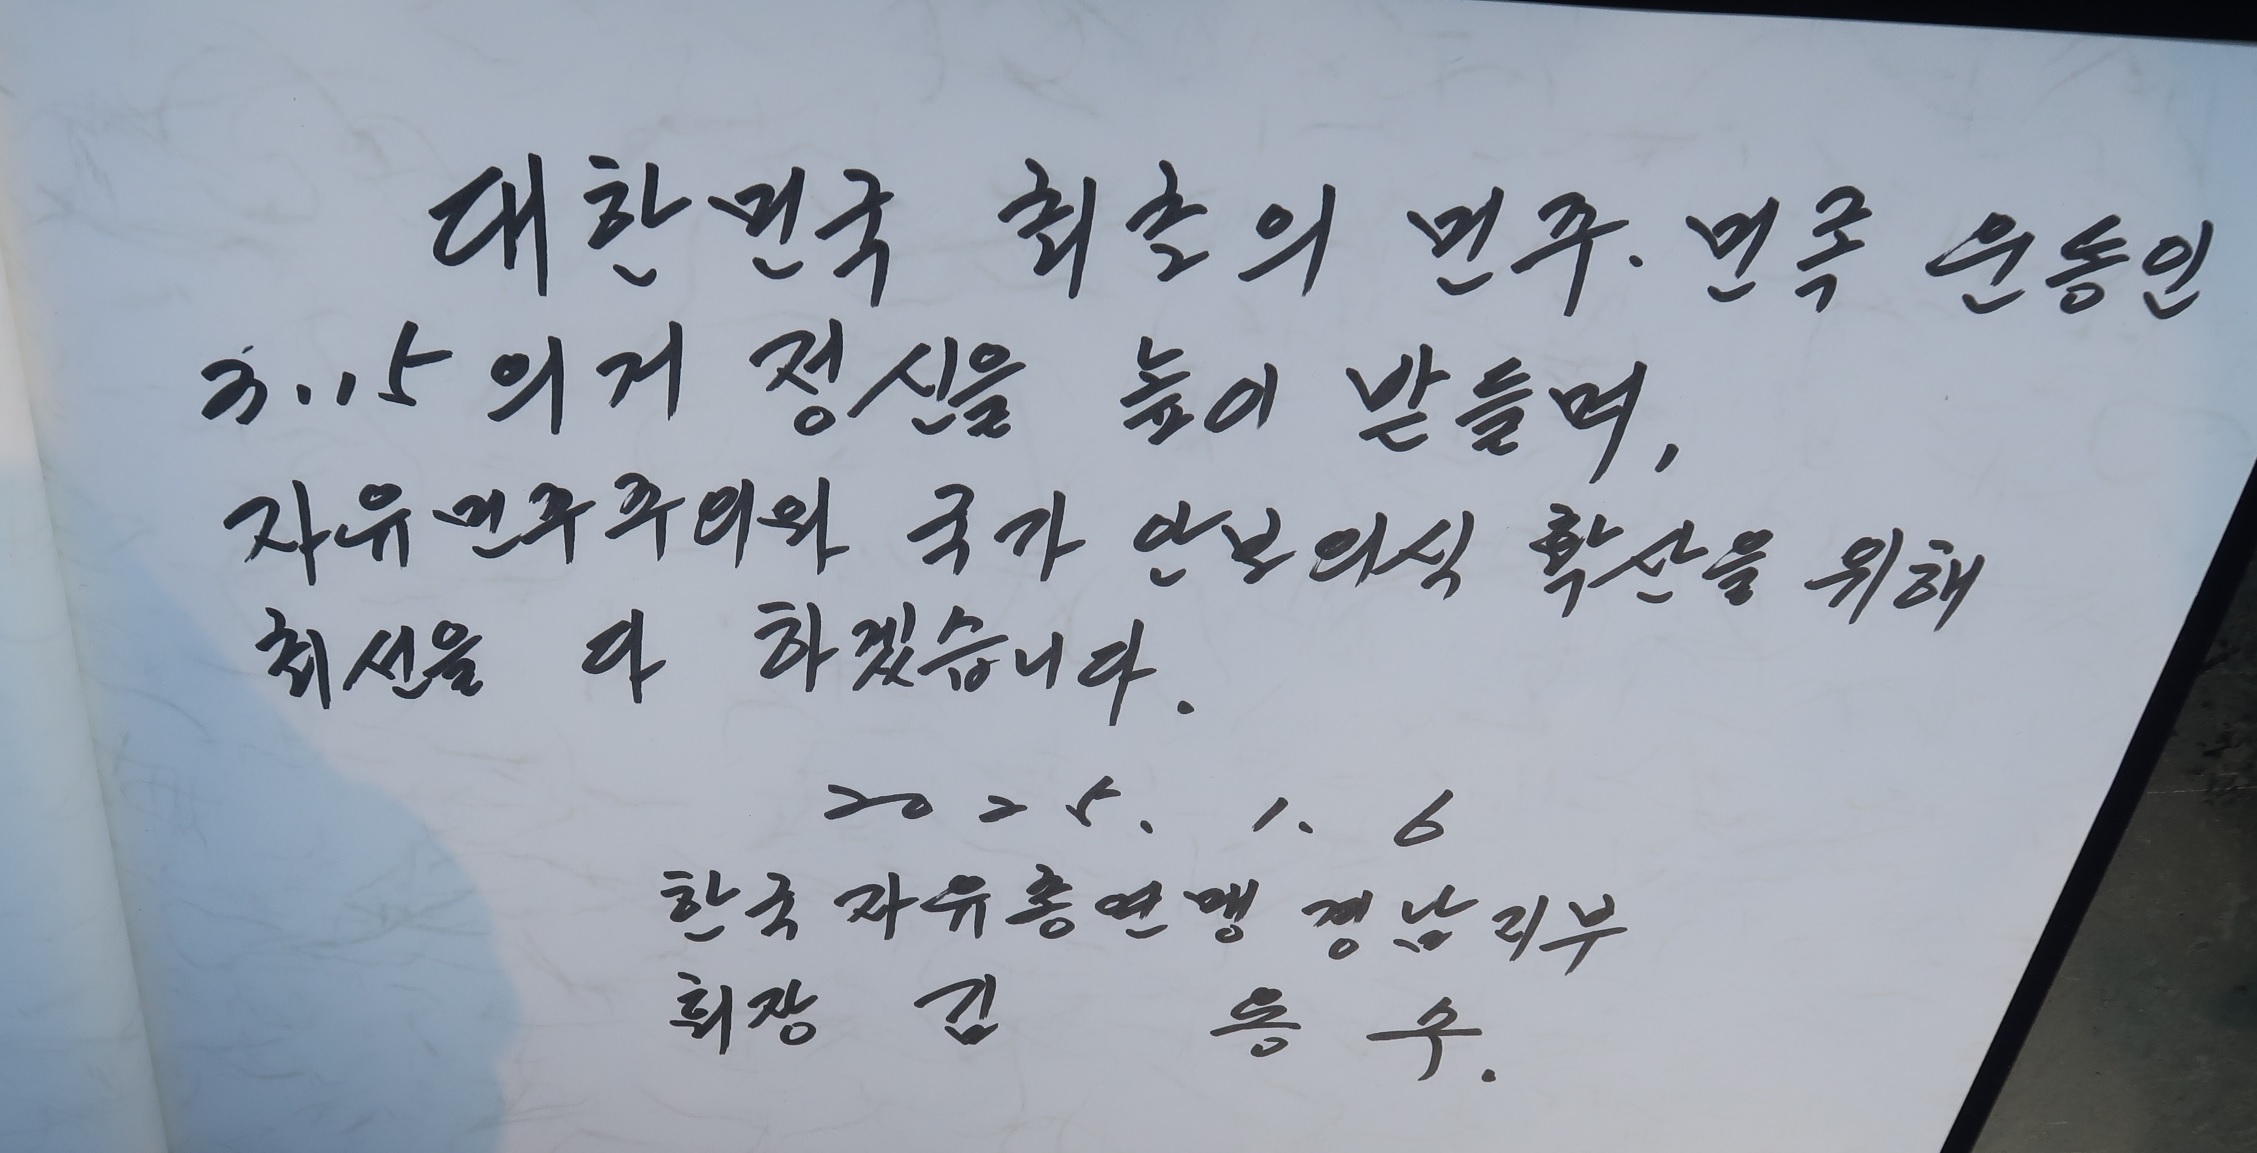 대한민국 최초의 민주.민족 운동인
3.15 의거 정신을 높이 받들며,
자유민주주의와 국가 안보의식 확산을 위해
최선을 다 하겠습니다.
2025. 1. 6
한국자유총연맹 경남지부
회장 김 응 수.